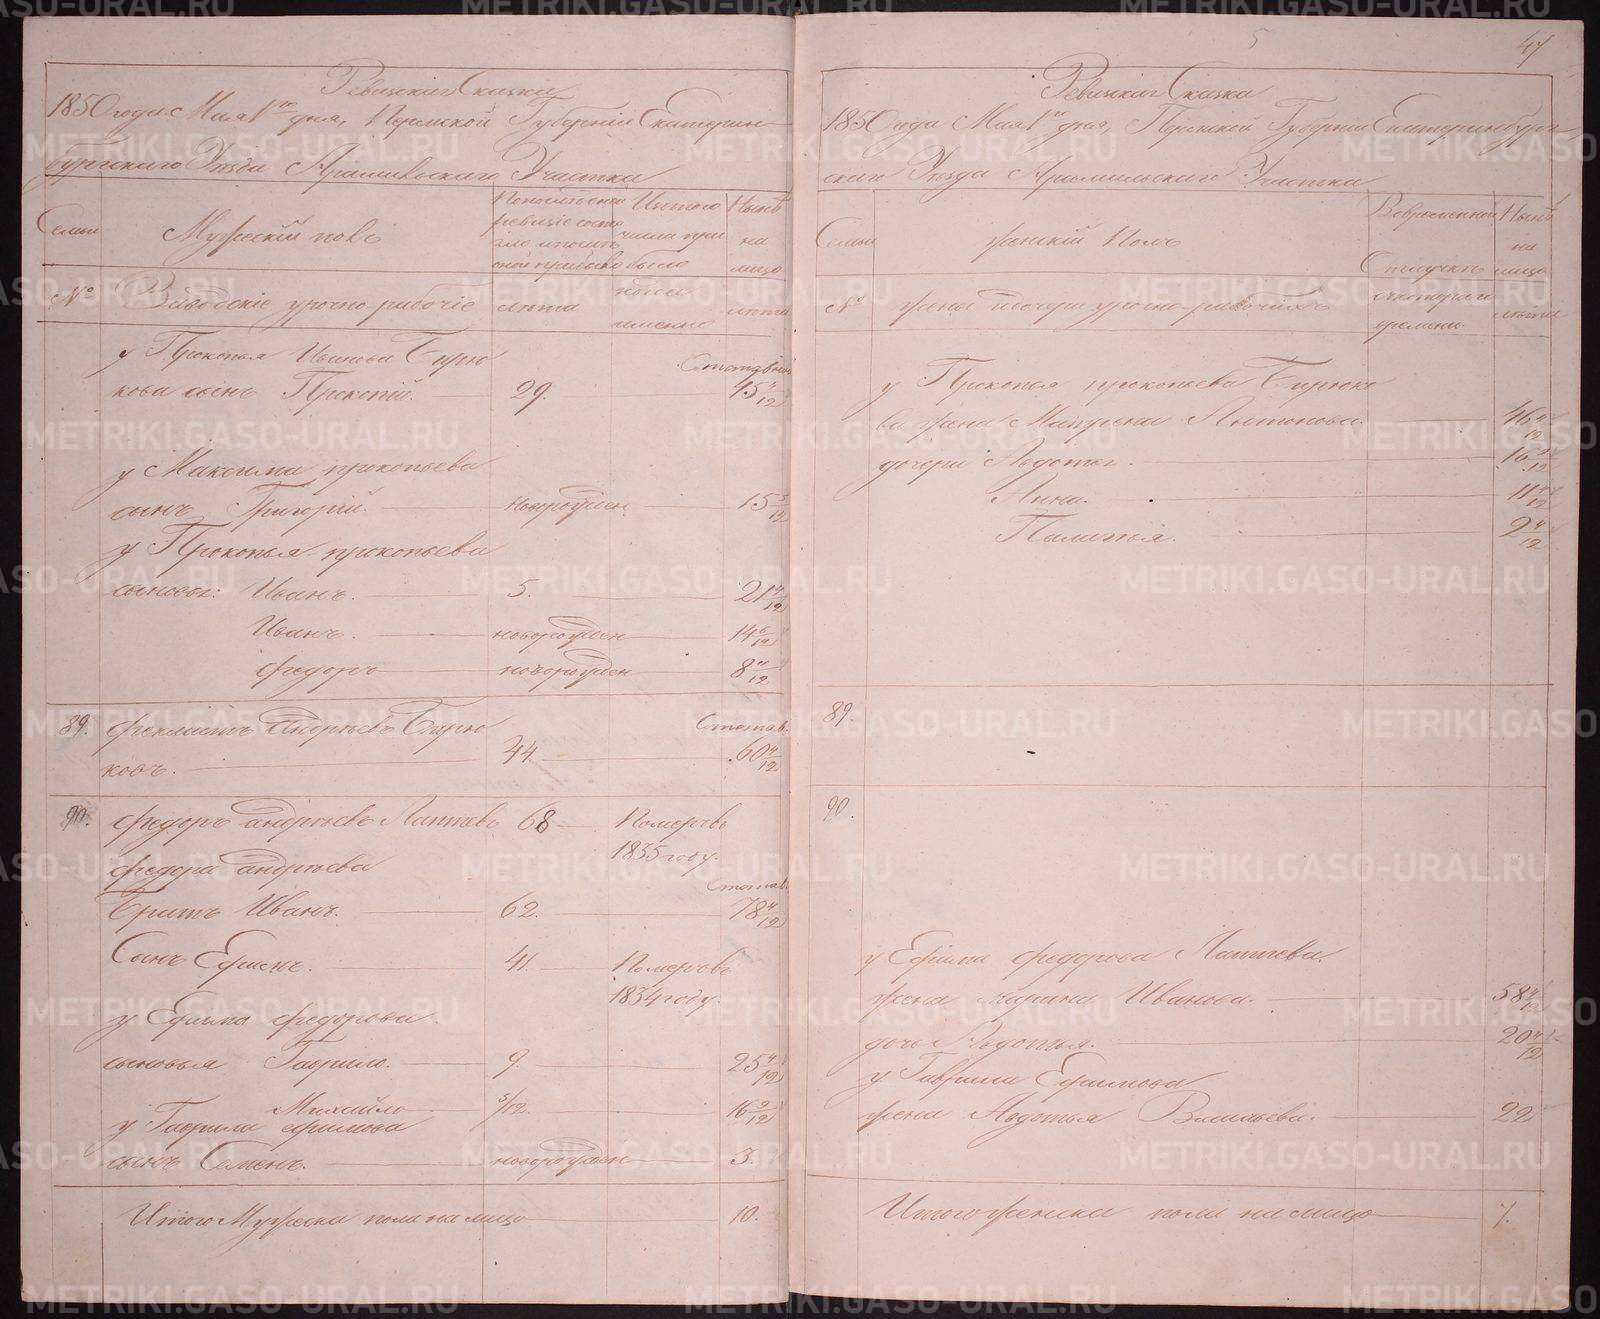 Ревизская Сказка
1850 года Мая 1го дня, Пермской Губернии Екатерин
бургского Уезда Арамильского Участка
Семьи
Мужескiй полъ
По последней ревизiи состояло и после оной прибыло
Изъ того числа
Ныне на лицо
№
Заводскiе урочно рабочiе
лета
лета
у Прокопья Иванова Бирю
Отставн.
кова сынъ Прокопiй. 29. 45 4/12
у Максима прокопьева
сынъ Григорiй. новорожден 15 5/12
у Прокопья прокопьева
сыновья: Иванъ. 5. 21 4/12
Иванъ. новорожден 14 6/12
Федоръ новорожден 8 4/12
89. Феклистъ Андреевъ Бирю
Отстав.
ковъ. 44. 60 4/12
90. Федоръ Андреевъ Лаптевъ 68 Померъ въ
1835 году.
Федора Андреева
Отстав.
Братъ Иванъ. 62. 78 4/12
Сынъ Ефимъ. 41. Померъ въ
1834 году.
у Ефима Федорова
сыновья Гаврило. 9. 25 4/12
Михайло 5/12. 16 9/12
у Гаврила Ефимова
сынъ Семенъ. новорожден 3.
Итого Мужеска пола на лицо 10.
5
47
Ревизская Сказка
1850 года Мая 1го дня, Пермской Губернии Екатеринбург
скаго Уезда Арамильскаго Участка
Семьи
Женскiй Полъ
Во временной Отлучке
Ныне на лицо
№
жены и дочери урочно рабочихъ
времени
лета
у Прокопья прокопьева Бирюко
ва жена Матрена Антонова. 46 4/12
дочери Авдотья. 16 2/12
Анна. 11 4/12
Палагъя. 2 4/12
89.
90.
у Ефима Федорова Лаптева.
жена Марина Иванова. 58 4/12
дочь Авдотья. 20 4/12
у Гаврила Ефимова
жена Авдотья Васильева. 22
Итого женска пола на лицо 7.
METRIKI.GASO-URAL.RU